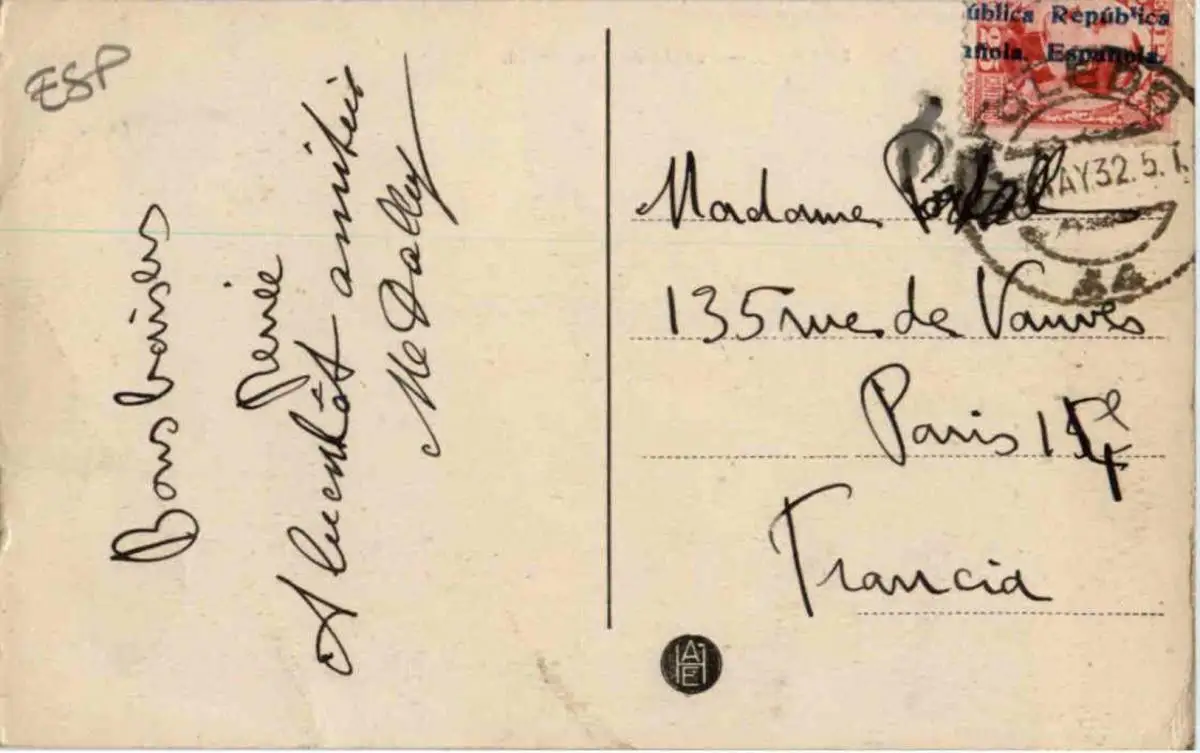 ESP
Bons baisers
Renée
A bientôt amitiés
Me Dolley
ública República
añola. Española.
25
TOLEDO
MAY 32.5.T
Madame
135 rue de Vanves
Paris 14e
Francia
HAE